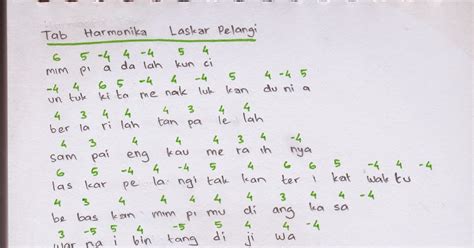 Tab Harmonika Laskar Pelangi
6 5 -4 4 -4 5 4
mim pi a da lah kun ci
-4 4 6 5 -4 4 -4 5 4 -4 5
un tuk ki ta me nak luk kan du ni a
4 3 4 4 3 4 4
ber la ri lah tan pa le lah
4 4 4 3 4 -4
sam pai eng kau me ra ih nya
6 5 -4 4 -4 5 4 6 6 5 -4 4 -4
las kar pe la ngi tak kan ter i kat wak tu
4 3 4 4 3 4 4 4 4 4
be bas kan mim pi mu di ang ka sa
3 -5 5 4 -5 5 4 4 -4
war na i bin tang di ji wa